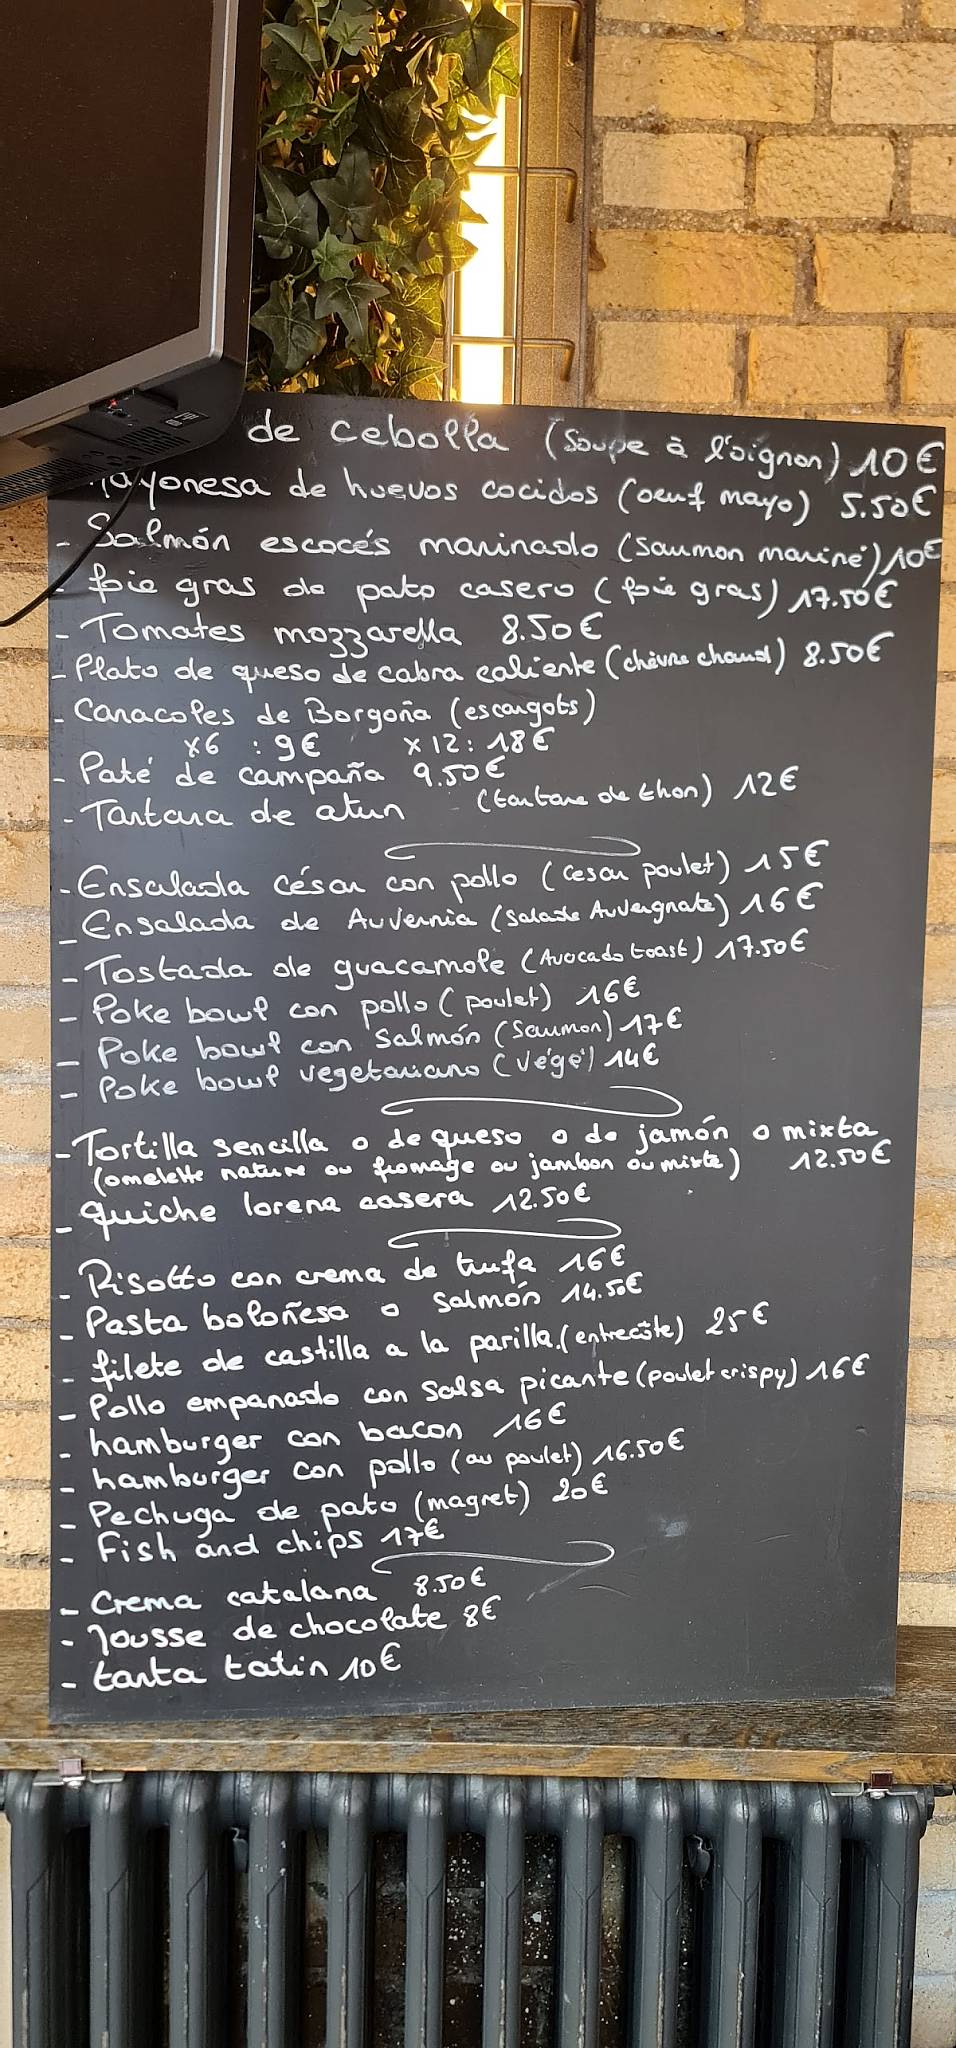 de cebolla (Soupe à l'oignon) 10€
Mayonesa de huevos cocidos (oeuf mayo) 5.50€
- Salmón escocés marinado (Saumon mariné) 10€
- foie gras de pato casero (foie gras) 17.50€
- Tomates mozzarella 8.50€
- Plato de queso de cabra caliente (chèvre chaud) 8.50€
- Caracoles de Borgoña (escargots)
x6 : 9€ x12: 18€
- Paté de campaña 9.50€
- Tartara de atun (tartare de thon) 12€
- Ensalada césar con pollo (cesar poulet) 15€
- Ensalada de Auvernia (Salade Auvergnate) 16€
- Tostada de guacamole (Avocado toast) 17.50€
- Poke bowl con pollo (poulet) 16€
- Poke bowl con Salmón (Saumon) 17€
- Poke bowl vegetariano (végé) 14€
- Tortilla sencilla o de queso o de jamón o mixta
(omelette nature ou fromage ou jambon ou mixte) 12.50€
- quiche lorena casera 12.50€
- Risotto con crema de trufa 16€
- Pasta boloñesa o Salmón 14.50€
- filete de castilla a la parilla. (entrecôte) 25€
- Pollo empanado con Salsa picante (poulet crispy) 16€
- hamburger con bacon 16€
- hamburger con pollo (au poulet) 16.50€
- Pechuga de pato (magret) 20€
- Fish and chips 17€
- Crema catalana 8.50€
- Mousse de chocolate 8€
- tarta tatin 10€